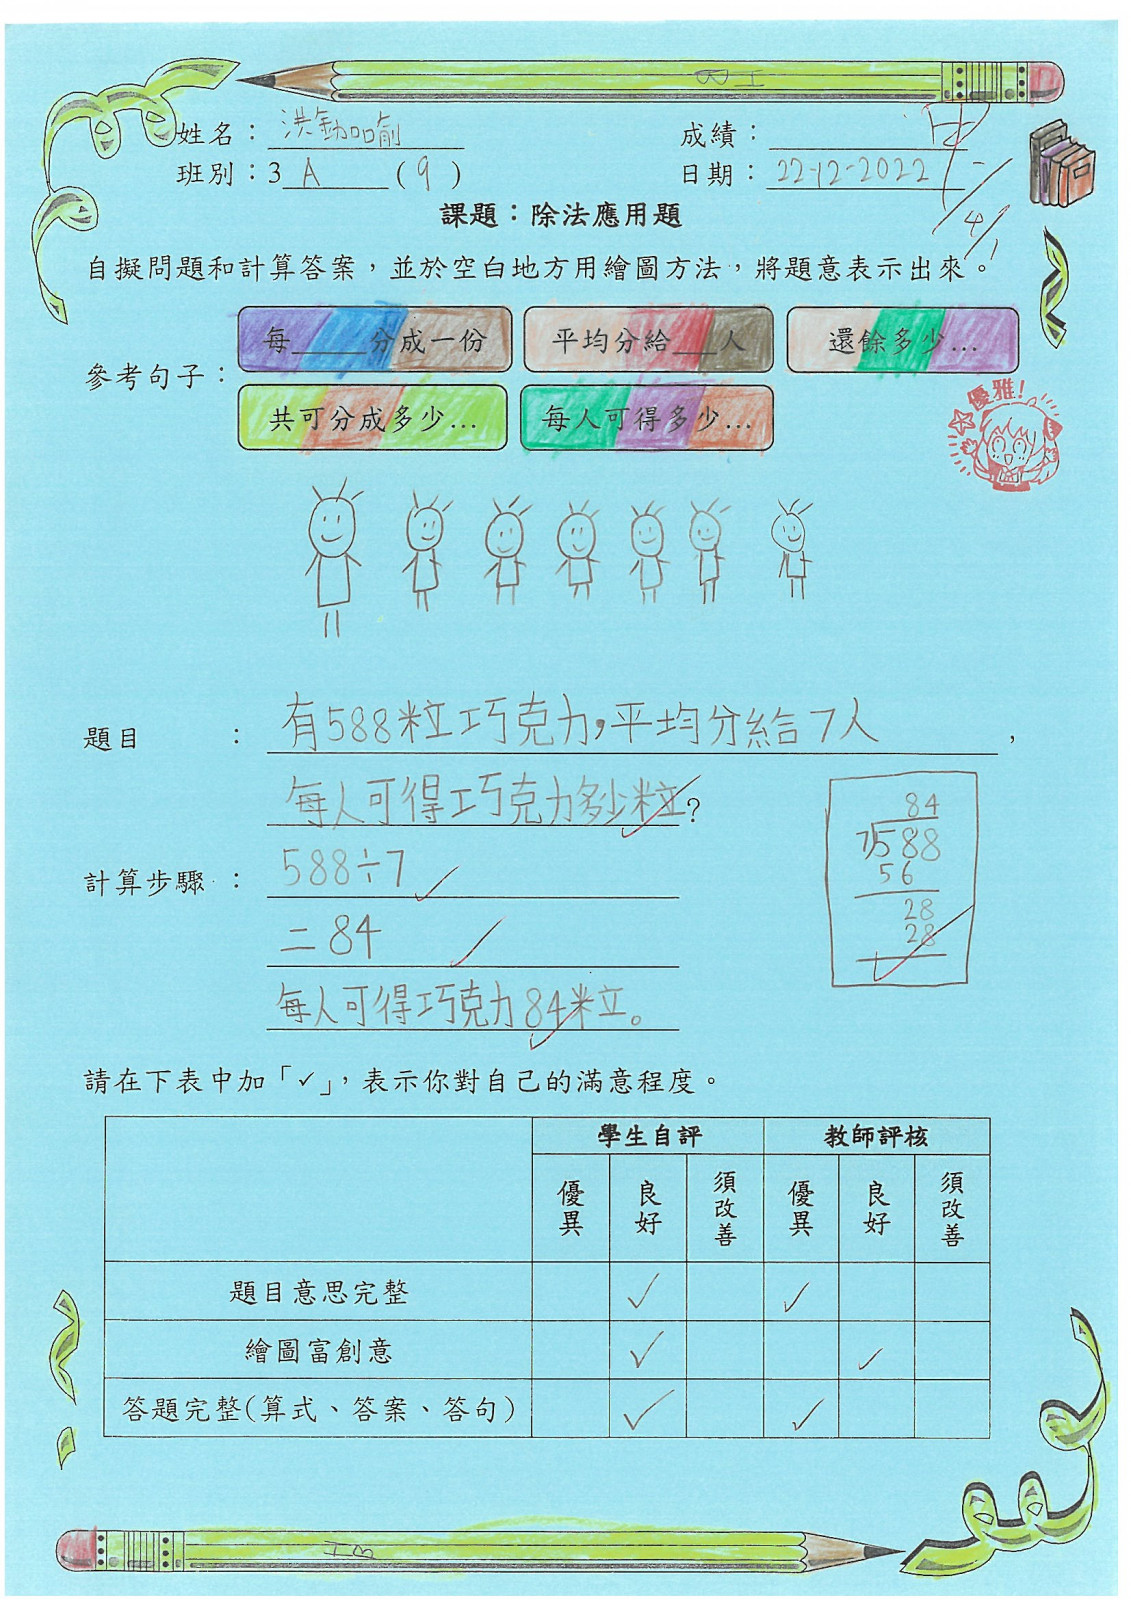 HB
姓名：洪
成績：
班別：3 A (9)
日期：22-12-2022
4/1
課題：除法應用題
自擬問題和計算答案，並於空白地方用繪圖方法，將題意表示出來。
參考句子：
每____分成一份 平均分給___人 還餘多少...
共可分成多少... 每人可得多少...
優雅!
題目 ： 有588粒巧克力，平均分給7人，
每人可得巧克力多少粒?
計算步驟 ： 588÷7
=84
每人可得巧克力84粒。
84
7588
56
28
28
請在下表中加「✓」，表示你對自己的滿意程度。
學生自評 教師評核
優異 良好 須改善 優異 良好 須改善
題目意思完整 ✓ ✓
繪圖富創意 ✓ ✓
答題完整(算式、答案、答句) ✓ ✓
HB